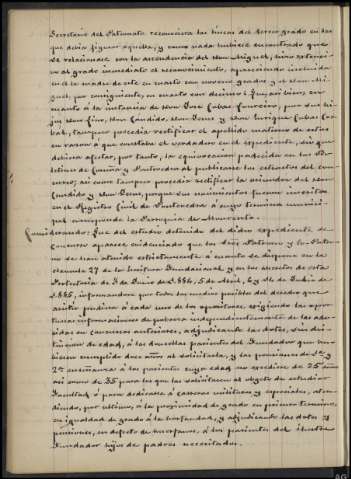 Secretario del Patronato reconociera las líneas del tercer grado en las
que debía figurar aquella, y como nada hubiese encontrado que
se relacionase con la ascendencia del Don Miguel, hizo extensi-
vo al grado inmediato el reconocimiento, apareciendo incluida
en él la madre de este en cuarto con noveno grados y el Don Mi-
guel, por consiguiente, en cuarto con décimo: bien, en
cuanto á la instancia de Don José Cabal Furceiro, por sus hi-
jos Don Lino, Don Cándido, Don Jesus y Don Enrique Cabas Ca-
bal, tampoco procedía rectificar el apellido materno de estos
en razon á que constaba el verdadero en el expediente, sin que
debiera afectar, por tanto, la equivocacion padecida en los Bo-
letines de Coruña y Pontevedra al publicarse los extractos del con-
curso; así como tampoco procedía rectificar la vecindad del Don
Cándido y Don Jesus, porque sus nacimientos fueron inscritos
en el Registro Civil de Pontevedra á cuyo término munici-
pal corresponde la Parroquia de Mourente.
Considerando: Que del estudio detenido del dicho expediente de
concurso aparece evidenciado que los Sres Patronos y los Patro-
no se han atenido estrictamente á cuanto se dispone en la
clausula 27 de la Escritura Fundacional y en los acuerdos de esta
Protectoría de 3 de Junio de 1.884, 5 de Abril, 6 y 16 de Julio de
1.885, informándose por todos los medios posibles del deudor que
asistir pudiera á cada uno de los opositores, exigiendo las opor-
tunas informaciones de pobreza independientemente de las adu-
cidas en concursos anteriores, adjudicando las dotes, sin dis-
tincion de edad, á las doncellas parientes del Fundador que hu-
biesen cumplido doce años al solicitarla, y las pensiones de 1ª y
2ª enseñanza á los parientes cuya edad no excediese de 25 años
así como de 35 para los que las solicitasen al objeto de estudiar
Facultad ó para dedicarse á carreras místicas y especiales, aten-
diendo, por último, á la proximidad de grado en primer término,
en igualdad de grado á la horfandad, y adjudicando las dotes y
pensiones, en defecto de huérfanos, á los parientes del ilustre
Fundador hijos de padres necesitados.